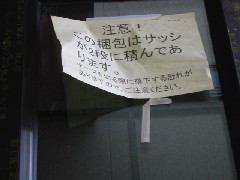 注意!
この梱包はサッシ
が2段に積んであ
ります
落下する恐れが
ありますので、ご注意ください。